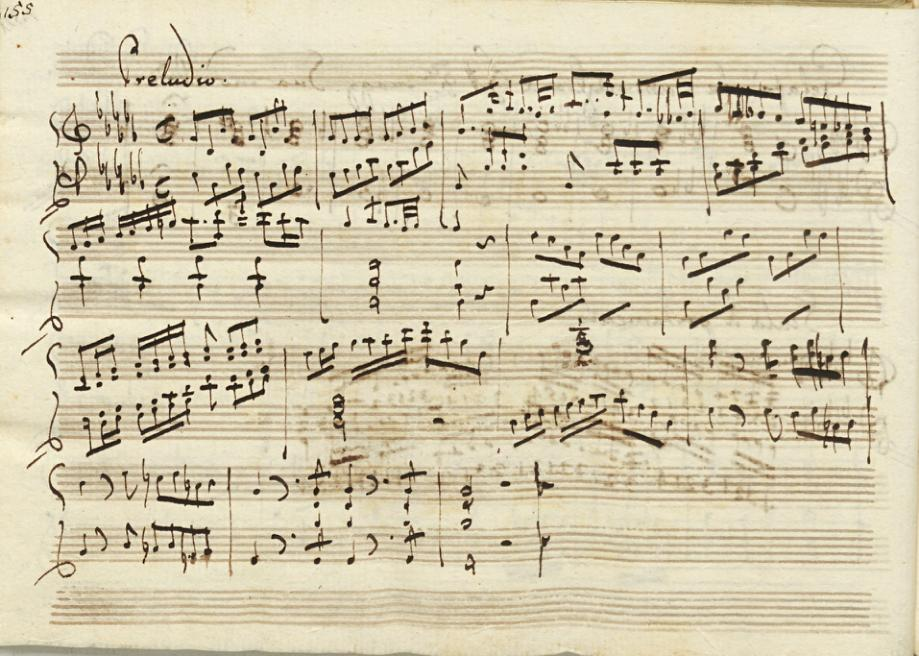 155
Preludio.